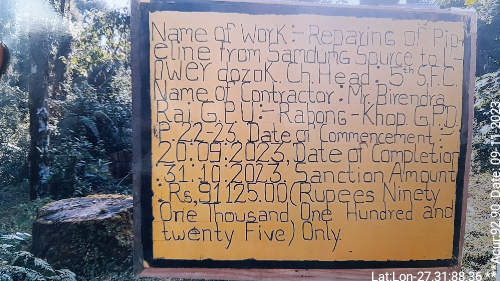 Name of Work:- Reparing of Pip-
eline from Samdung Source to L-
ower dozok. Ch.Head: 5th S.F.C.
Name of Contractor: Mr. Birendra
Rai G.P.U:- Rapong-Khop. G.P.D.
P 22-23, Date of Commencement,
20:09.2023, Date of Completion
:31.10.2023, Sanction Amount
:Rs,91125.00(Rupees Ninety
One Thousand, One Hundred and
twenty Five) Only.
Lat:Lon-27.31:88.36